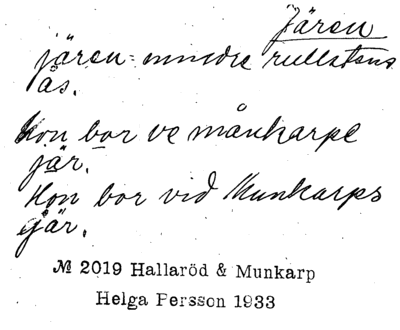 Jären
jären = mindre rullstens
ås.
Hon bor ve månkarpe
jär.
Hon bor vid Munkarps
jär.
№ 2019 Hallaröd & Munkarp
Helga Persson 1933